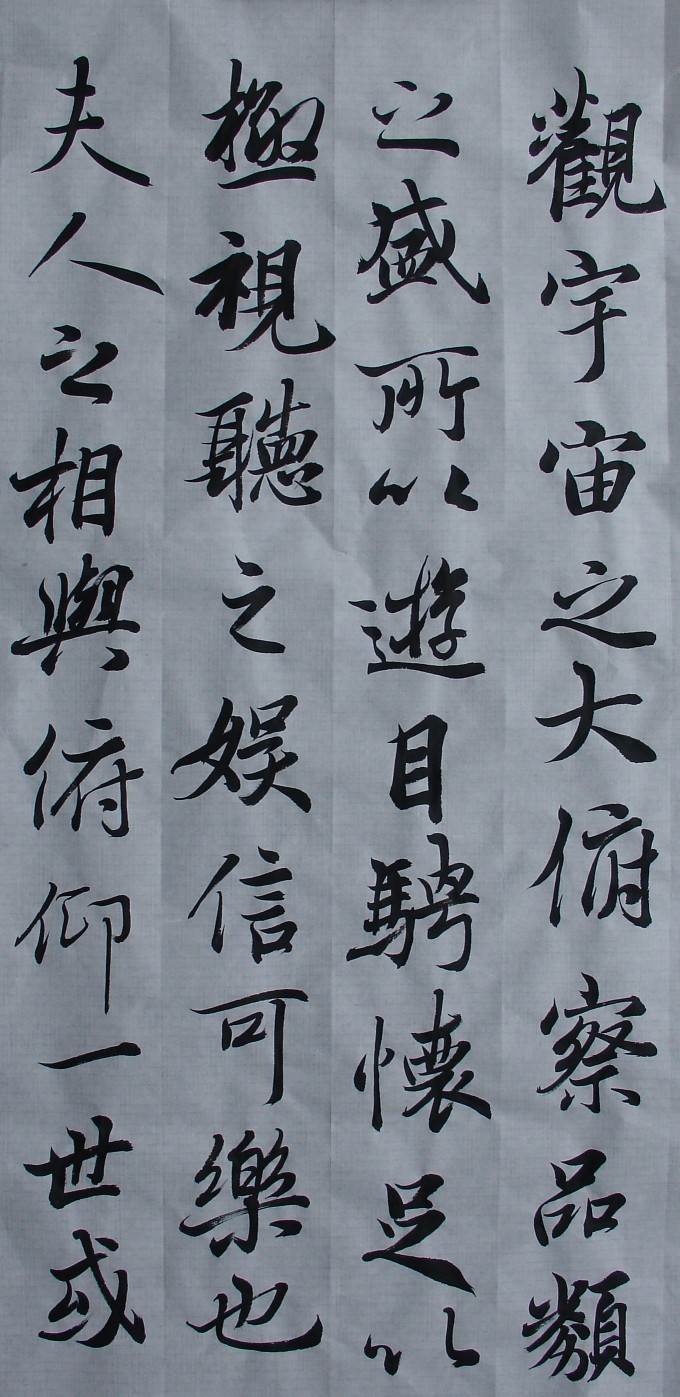 觀宇宙之大俯察品類
之盛所以遊目騁懷足以
極視聽之娛信可樂也
夫人之相與俯仰一世或